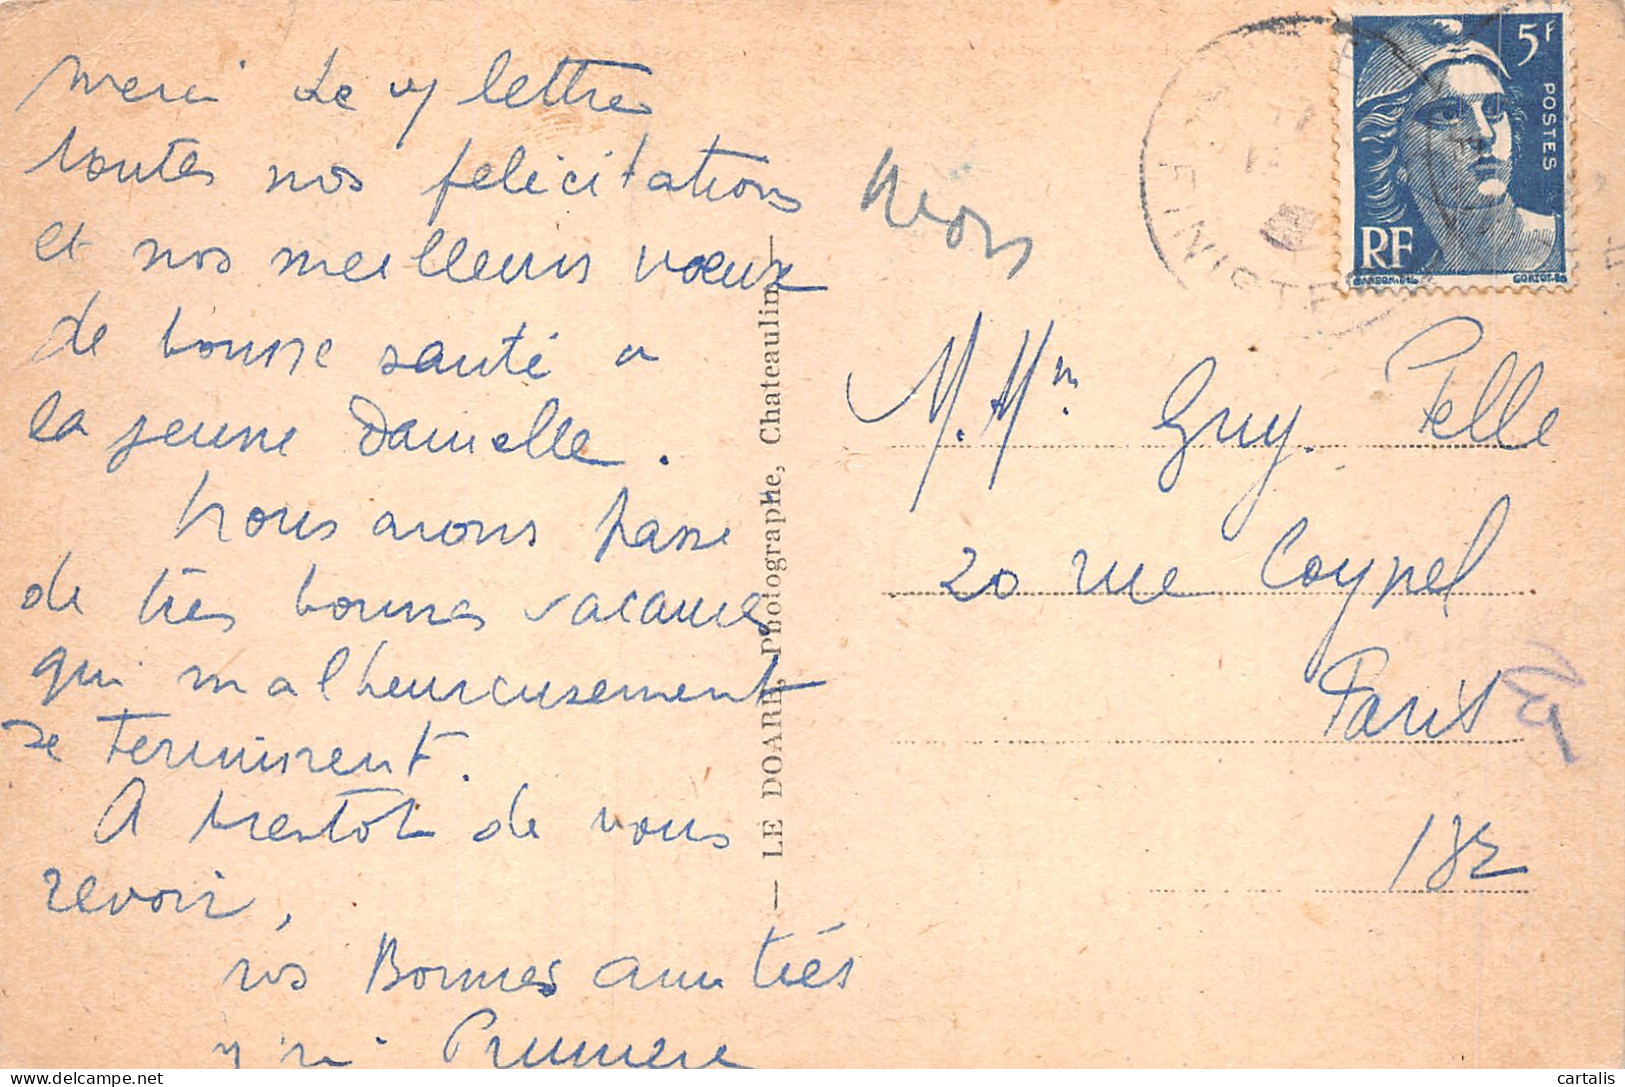 merci de vos lettres
toutes nos félicitations
et nos meilleurs vœux
de bonne santé a
la jeune Danielle.
Nous avons passé
de très bonnes vacances
qui malheureusement
se terminent.
A bientôt de vous
revoir,
nos Bonnes amitiés
— LE DOARÉ, Photographe, Chateaulin —
5F
POSTES
RF
GANDON DEL
CORTOT SC
FINISTÈRE
M. Mm Guy. Pelle
20 rue Coypel
Paris
13e
cartalis